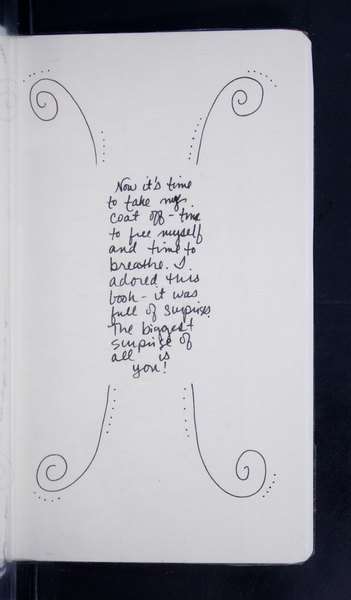 Now it's time
to take my
coat off - time
to free myself
and time to
breathe. I
adored this
book - it was
full of surprises.
The biggest
surprise of
all is
you!